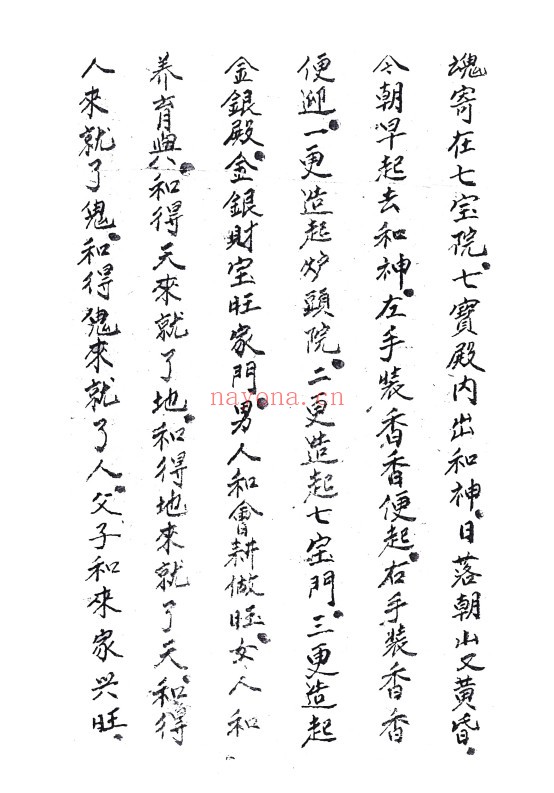 魂寄在七宝院。七寶殿内出和神。日落朝出又黄昏。
今朝早起去和神。左手裝香香便起。右手裝香香
便迎。一更造起炉頭院。二更造起七宝門。三更造起
金銀殿。金銀財宝旺家門。男人和會耕做旺。女人和
养育興。和得天來就了地。和得地來就了天。和得
人來就了鬼。和得鬼來就了人。父子和來家兴旺。
nayona.cn